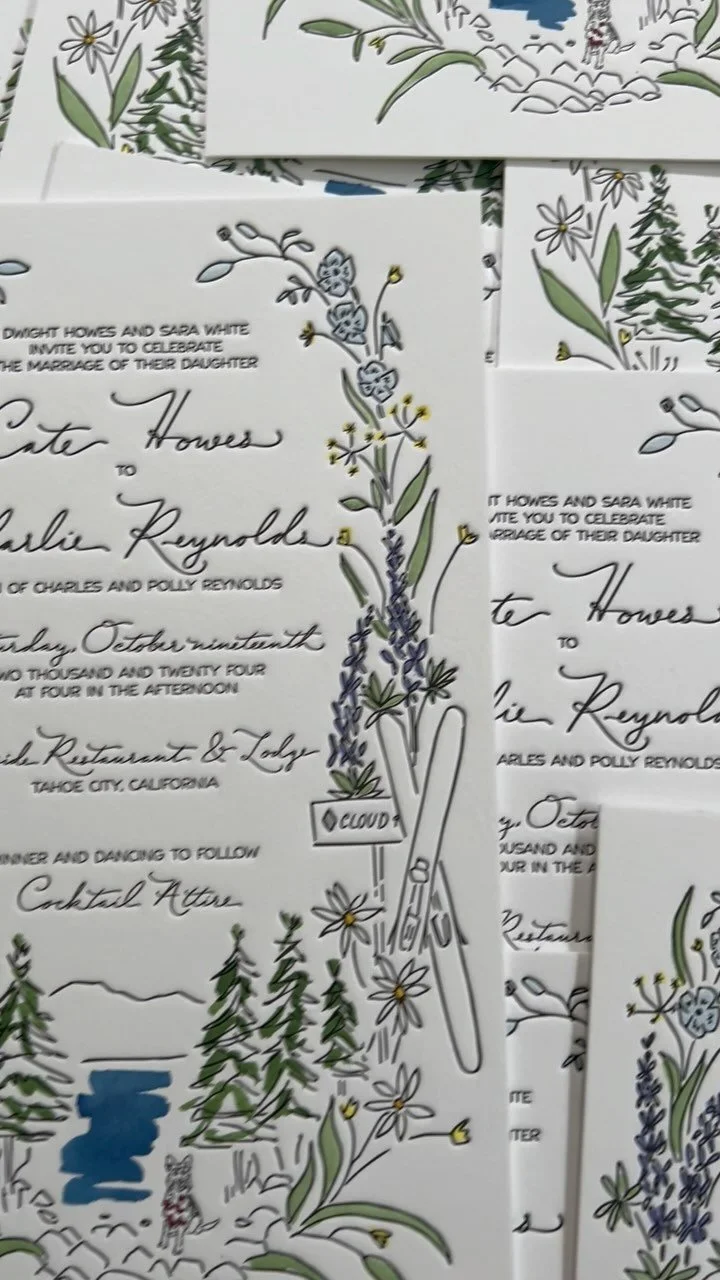 DWIGHT HOWES AND SARA WHITE
INVITE YOU TO CELEBRATE
THE MARRIAGE OF THEIR DAUGHTER
Cate Howes
TO
Charlie Reynolds
OF CHARLES AND POLLY REYNOLDS
October nineteenth
TWO THOUSAND AND TWENTY FOUR
AT FOUR IN THE AFTERNOON
Restaurant & Lodge
TAHOE CITY, CALIFORNIA
CLOUD
DINNER AND DANCING TO FOLLOW
Cocktail Attire
HOWES AND SARA WHITE
YOU TO CELEBRATE
MARRIAGE OF THEIR DAUGHTER
Howes
TO
AND POLLY REYNOLDS
AND
IN THE